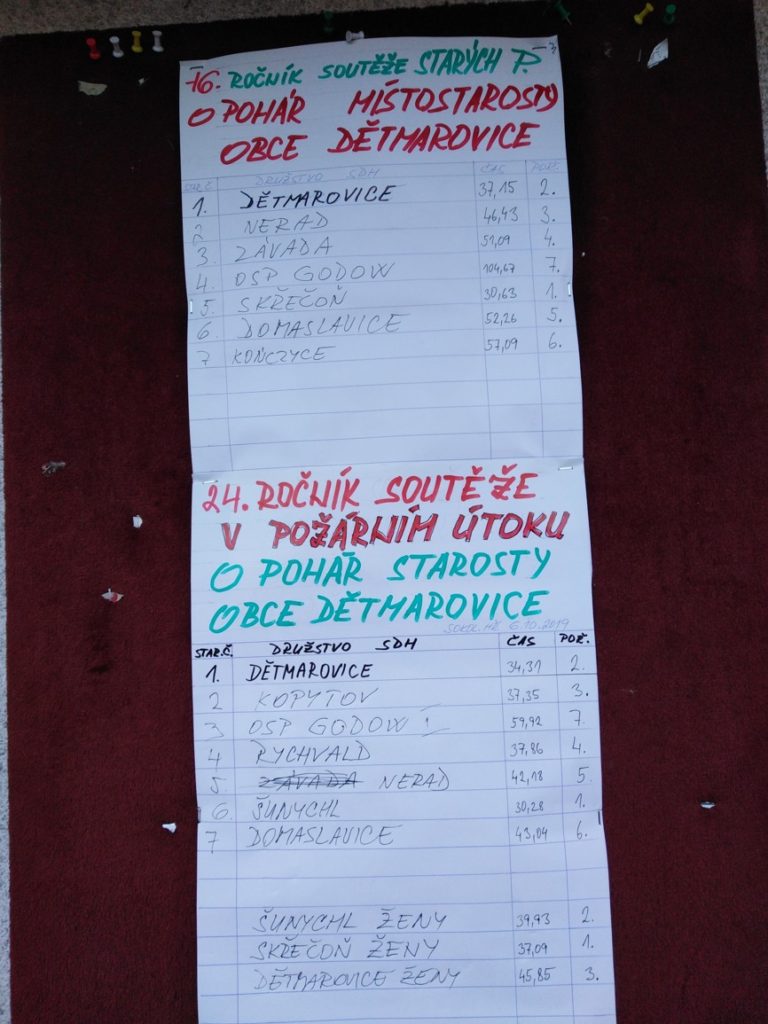 16. ROČNÍK SOUTĚŽE STARÝCH P.
O POHÁR MÍSTOSTAROSTY
OBCE DĚTMAROVICE
STAR.Č. DRUŽSTVO SDH ČAS POŘ.
1. DĚTMAROVICE 37,15 2.
2 NERAD 46,43 3.
3. ZÁVADA 51,09 4.
4. OSP GODOW 104,67 7.
5. SKŘEČOŇ 30,63 1.
6 DOMASLAVICE 52,26 5.
7 KOŃCZYCE 57,09 6.
24. ROČNÍK SOUTĚŽE
V POŽÁRNÍM ÚTOKU
O POHÁR STAROSTY
OBCE DĚTMAROVICE
SOKOL. HŘ. 6.10.2019
STAR.Č. DRUŽSTVO SDH ČAS POŘ.
1. DĚTMAROVICE 34,31 2.
2 KOPYTOV 37,35 3.
3 OSP GODOW 1 59,92 7.
4 RYCHVALD 37,86 4.
5. ZÁVADA NERAD 42,18 5.
6. ŠUNYCHL 30,28 1.
7 DOMASLAVICE 43,04 6.
ŠUNYCHL ŽENY 39,93 2.
SKŘEČOŇ ŽENY 37,09 1.
DĚTMAROVICE ŽENY 45,85 3.